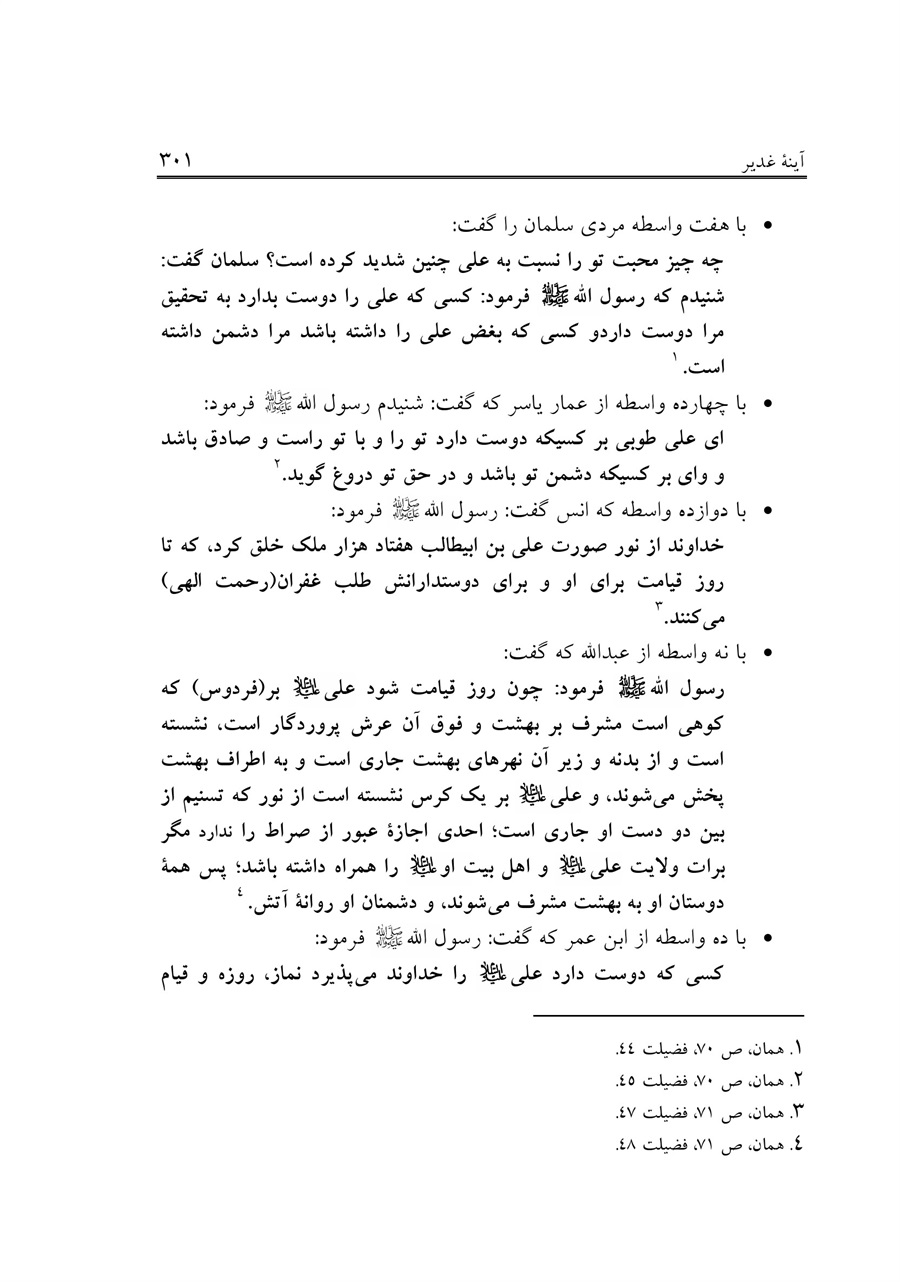 آینهٔ غدیر ۳۰۱
• با هفت واسطه مردی سلمان را گفت:
چه چیز محبت تو را نسبت به علی چنین شدید کرده است؟ سلمان گفت:
شنیدم که رسول الله ﷺ فرمود: کسی که علی را دوست بدارد به تحقیق
مرا دوست داردو کسی که بغض علی را داشته باشد مرا دشمن داشته
است. ۱
• با چهارده واسطه از عمار یاسر که گفت: شنیدم رسول الله ﷺ فرمود:
ای علی طوبی بر کسیکه دوست دارد تو را و با تو راست و صادق باشد
و وای بر کسیکه دشمن تو باشد و در حق تو دروغ گوید.۲
• با دوازده واسطه که انس گفت: رسول الله ﷺ فرمود:
خداوند از نور صورت علی بن ابیطالب هفتاد هزار ملک خلق کرد، که تا
روز قیامت برای او و برای دوستدارانش طلب غفران(رحمت الهی)
می‌کنند.۳
• با نه واسطه از عبدالله که گفت:
رسول الله ﷺ فرمود: چون روز قیامت شود علی علیه‌السلام بر(فردوس) که
کوهی است مشرف بر بهشت و فوق آن عرش پروردگار است، نشسته
است و از بدنه و زیر آن نهرهای بهشت جاری است و به اطراف بهشت
پخش می‌شوند، و علی علیه‌السلام بر یک کرس نشسته است از نور که تسنیم از
بین دو دست او جاری است؛ احدی اجازهٔ عبور از صراط را ندارد مگر
برات ولایت علی علیه‌السلام و اهل بیت او علیه‌السلام را همراه داشته باشد؛ پس همهٔ
دوستان او به بهشت مشرف می‌شوند، و دشمنان او روانهٔ آتش. ٤
• با ده واسطه از ابن عمر که گفت: رسول الله ﷺ فرمود:
کسی که دوست دارد علی علیه‌السلام را خداوند می‌پذیرد نماز، روزه و قیام
۱. همان، ص ۷۰، فضیلت ٤٤.
۲. همان، ص ۷۰، فضیلت ٤٥.
۳. همان، ص ۷۱، فضیلت ٤۷.
٤. همان، ص ۷۱، فضیلت ٤۸.